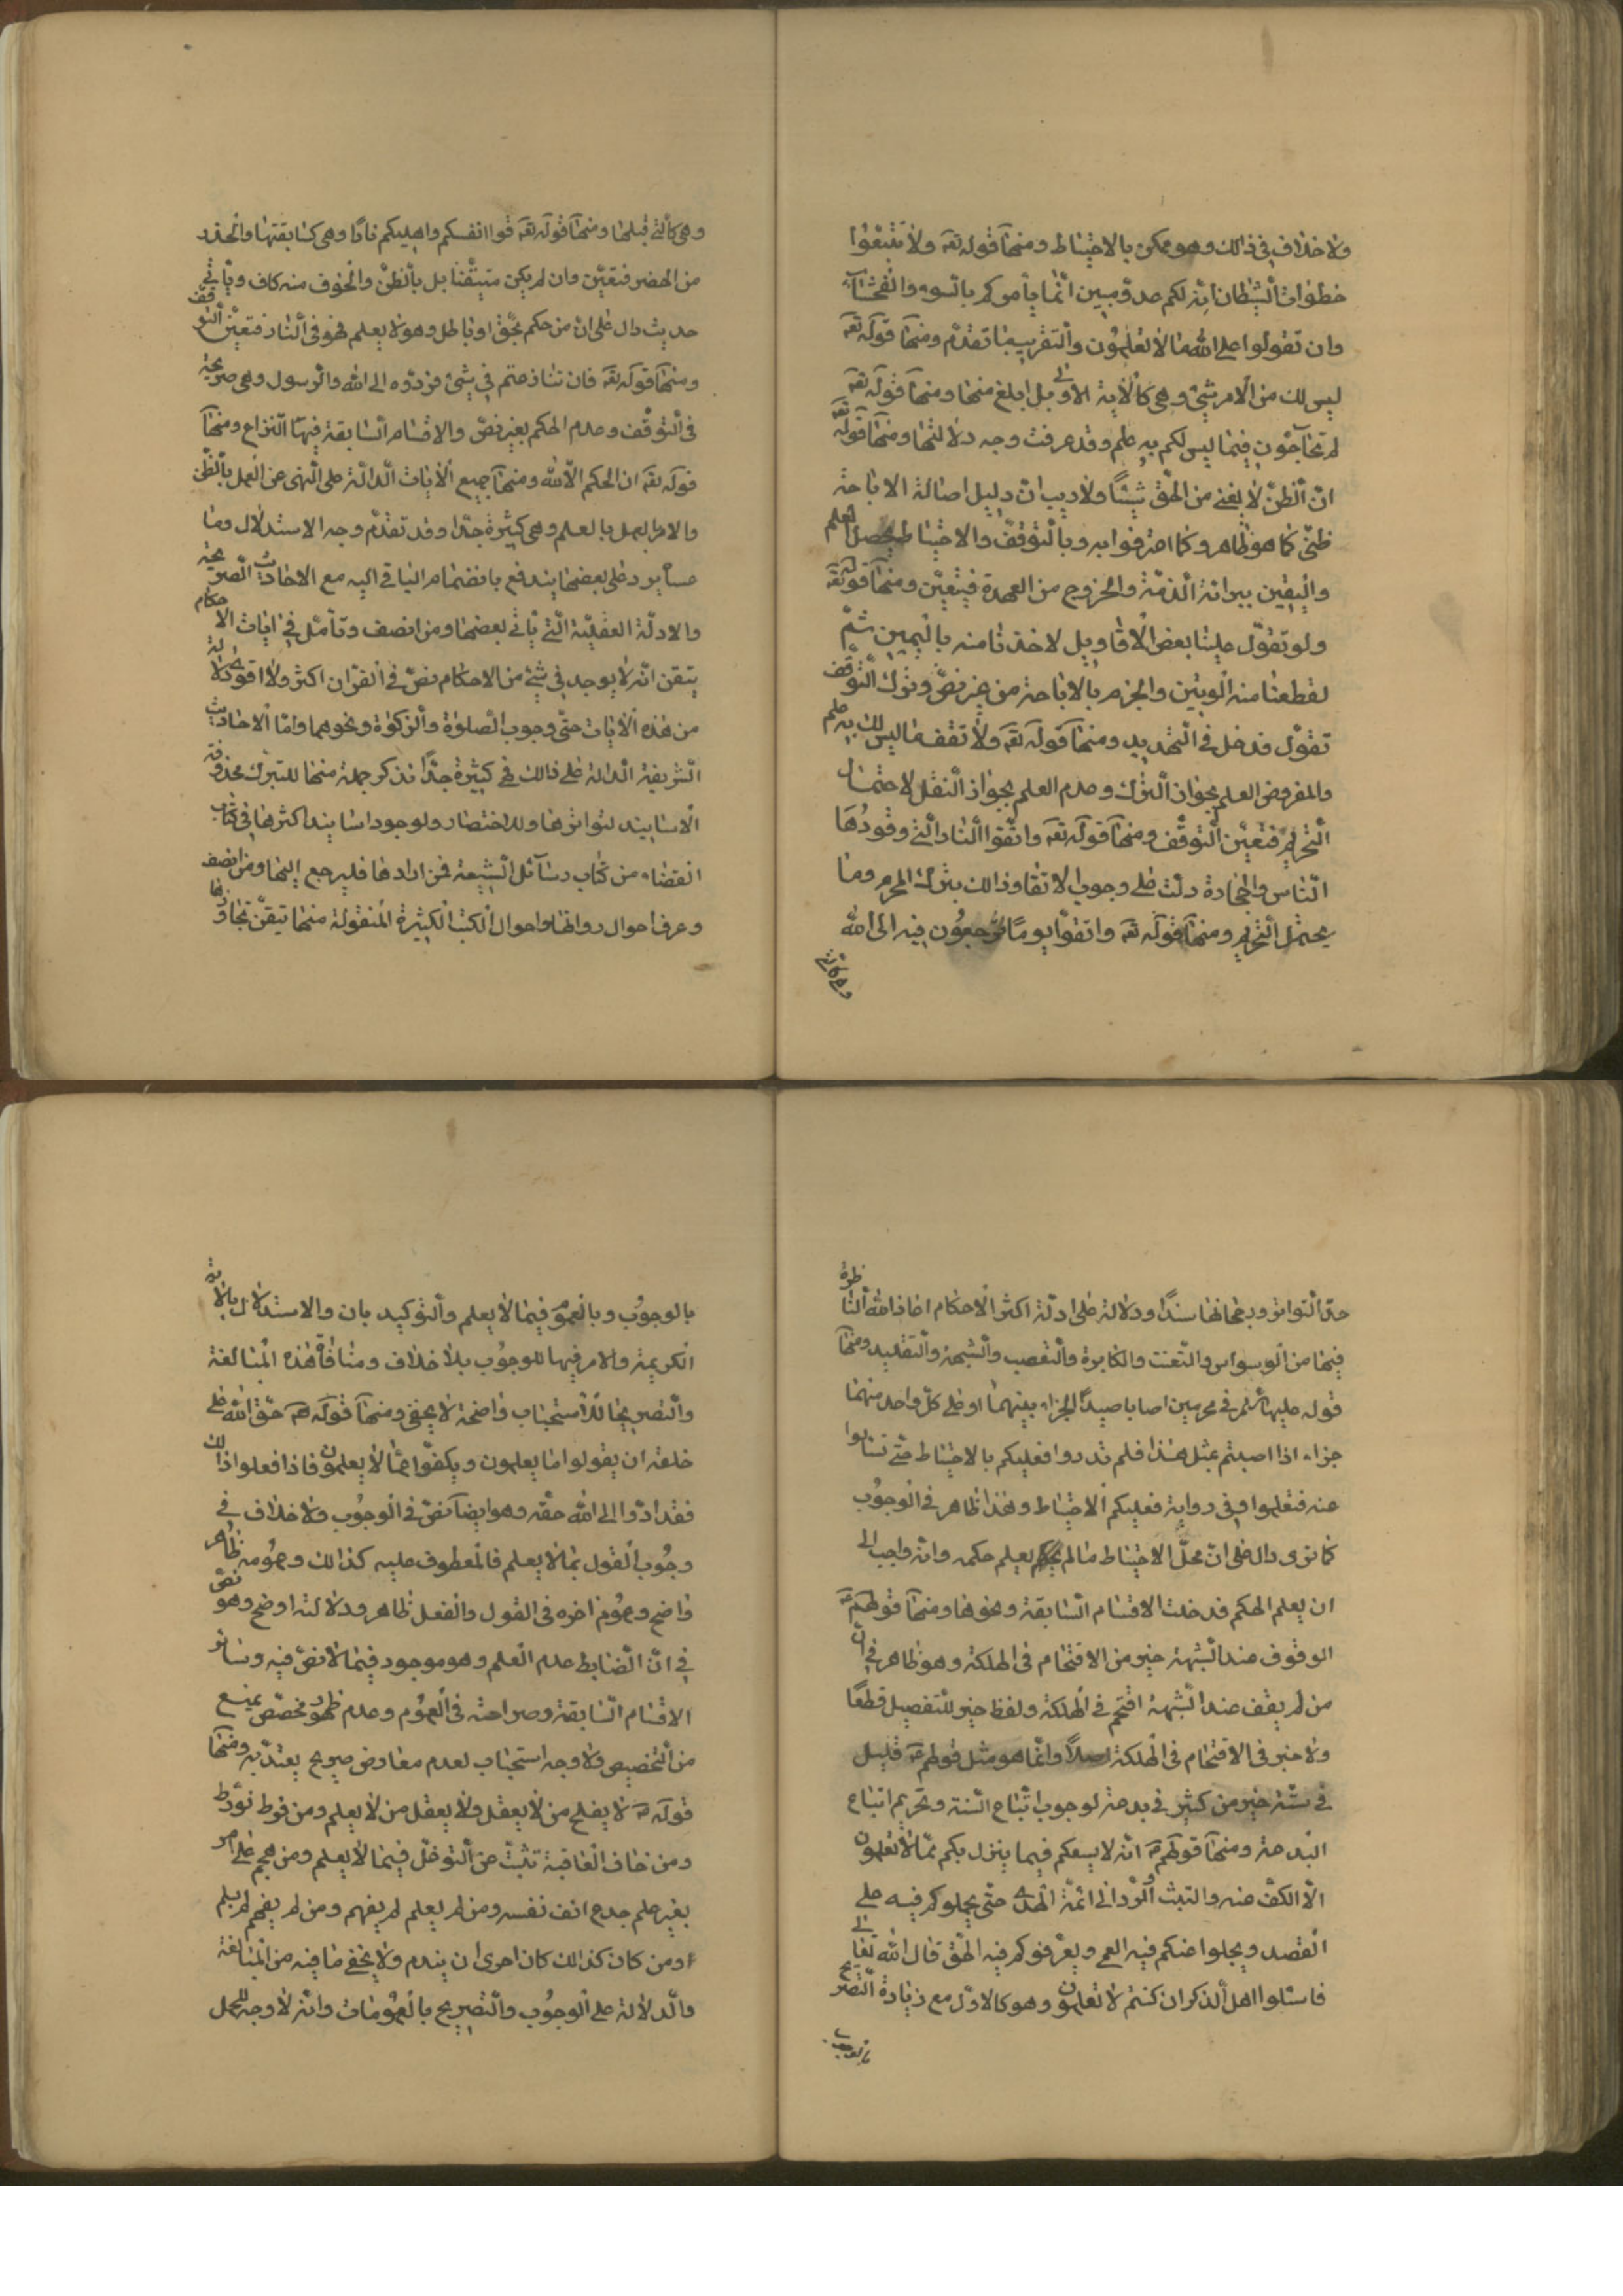 ولا خلاف في ذالك وهو ممكن بالاحتياط ومنها قوله تعه ولا تتبعوا
خطوات الشيطان انه لكم عدو مبين انما يأمركم بالسوء والفحشاء
وان تقولوا على الله ما لا تعلمون والتقريب ما تقدم ومنها قوله تعه
ليس لك من الامر شئ وهى كالاية الاولى بل ابلغ منها ومنها قوله تعه
لم تحاجون فيما ليس لكم به علم وقد عرفت وجه دلالتها ومنها قوله تعه
ان الظن لا يغنى من الحق شيئا ولا ريب ان دليل اصالة الاباحة
ظنى كما هو ظاهر وكما اعترفوا به وبالتوقف والاحتياط يحصل العلم
واليقين ببرائة الذمة والخروج من العهدة فيتعين ومنها قوله تعه
ولو تقول علينا بعض الاقاويل لاخذنا منه باليمين ثم
لقطعنا منه الوتين والجزم بالاباحة من غير نص وترك التوقف
تقول فدخل في التهديد ومنها قوله تعه ولا تقف ما ليس لك به علم
والمفروض العلم بجواز الترك وعدم العلم بجواز الفعل لاحتمال
التحريم فتعين التوقف ومنها قوله تعه واتقوا النار التي وقودها
الناس والحجارة دلت على وجوب الاتقا وذالك بترك المحرم وما
يحتمل التحريم ومنها قوله تعه واتقوا يوما ترجعون فيه الى الله
وهي كالتي
وهي كالتي قبلها ومنها قوله تعه قوا انفسكم واهليكم نارا وهى كسابقتها والحذر
من الضرر فتعين وان لم يكن متيقنا بل بالظن والخوف منه كاف ويأتي
حديث دال على ان من حكم بحق او باطل وهو لا يعلم فهو في النار فتعين التوقف
ومنها قوله تعه فان تنازعتم في شئ فردوه الى الله والرسول وهى صريحة
في التوقف وعدم الحكم بغير نص والاقسام السابقة فيها النزاع ومنها
قوله تعه ان الحكم الا لله ومنها جميع الايات الدالة على النهى عن العمل بالظن
والامر بالعمل بالعلم وهى كثيرة جدا وقد تقدم وجه الاستدلال وما
عسا يرد على بعضها يندفع بانضمام الباقي اليه مع الاحاديث الصريحة
والادلة العقلية التي يأتي بعضها ومن انصف وتأمل في ايات الاحكام
تيقن انه لا يوجد في شئ من الاحكام نص في القران اكثر ولا اقوى دلالة
من هذه الايات حتى وجوب الصلوة والزكوة ونحوهما واما الاحاديث
الشريفة الدالة على ذالك فهي كثيرة جدا نذكر جملة منها للتبرك محذوفة
الاسانيد لتواترها وللاختصار ولوجود اسانيد اكثرها في كتاب
القضاء من كتاب وسائل الشيعة فمن ارادها فليرجع اليها ومن انصف
وعرف احوال رواتها واحوال الكتب الكثيرة المنقولة منها تيقن تجاوزها
حد التواتر ورجحانها سندا ودلالة على ادلة اكثر الاحكام اعاذ الله الناظرة
فيها من الوسواس والتعنت والمكابرة والتعصب والشبهة والتقليد ومنها
قوله عليه السلم في محرمين اصابا صيدا الجزاء بينهما او على كل واحد منهما
جزاء اذا اصبتم بمثل هذا فلم تدروا فعليكم بالاحتياط حتى تسئلوا
عنه فتعلموا وفي رواية فعليكم الاحتياط وهذا ظاهر في الوجوب
كما ترى دال على ان محل الاحتياط ما لم يعلم حكمه وانه واجب الى
ان يعلم الحكم فدخلت الاقسام السابقة ونحوها ومنها قولهم ع
الوقوف عند الشبهة خير من الاقتحام في الهلكة وهو ظاهر في ان
من لم يقف عند الشبهة اقتحم في الهلكة ولفظ خير للتفصيل قطعا
ولا خير في الاقتحام في الهلكة اصلا وانما هو مثل قولهم ع قليل
في سنة خير من كثير في بدعة لوجوب اتباع السنة وتحريم اتباع
البدعة ومنها قولهم ع انه لا يسعكم فيما ينزل بكم مما لا تعلمون
الا الكف عنه والتبث والرد الى ائمة الهدى حتى يحملوكم فيه على
القصد ويجلوا عنكم فيه العمى ويعرفوكم فيه الحق قال الله تعالى
فاسئلوا اهل الذكر ان كنتم لا تعلمون وهو كالاول مع زيادة التصريح
بالوجوب
بالوجوب وبالعموم فيما لا يعلم والتوكيد بان والاستدلال بالاية
الكريمة والامر فيها للوجوب بلا خلاف ومنافاة هذه المبالغة
والتصريحا للاستحباب واضحة لا يخفى ومنها قوله ع حق الله على
خلقه ان يقولوا ما يعلمون ويكفوا عما لا يعلمون فاذا فعلوا ذالك
فقد ادوا الى الله حقه وهو ايضا نص في الوجوب ولا خلاف في
وجوب القول بما لا يعلم فالمعطوف عليه كذالك وعمومه ظاهر
واضح وعموم اخره في القول والفعل ظاهر ودلالته اوضح وهو نص
في ان الضابط عدم العلم وهو موجود فيما لا نص فيه وسائر
الاقسام السابقة وصراحته في العموم وعدم ظهور مخصص يمنع
من التخصيص ولا وجه استحباب لعدم معارض صريح يعتد به ومنها
قوله ع لا يفلح من لا يعقل ولا يعقل من لا يعلم ومن فرط تورط
ومن خاف العاقبة تثبت عن التوغل فيما لا يعلم ومن هجم على امر
بغير علم جدع انف نفسه ومن لم يعلم لم يفهم ومن لم يفهم لم يسلم
ومن كان كذالك كان احرى ان يندم ولا يخفى ما فيه من المبالغة
والدلالة على الوجوب والتصريح بالعمومات وانه لا وجه للحمل